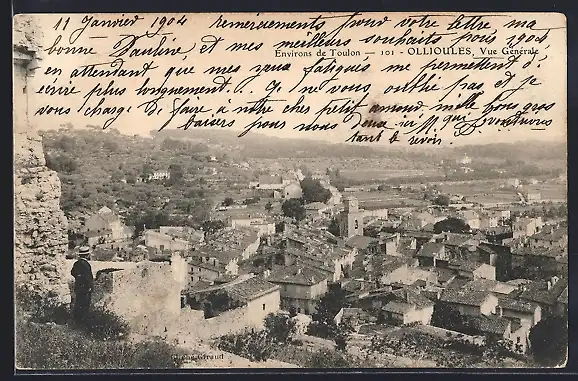 11 Janvier 1904 remerciements pour votre lettre ma
bonne Pauline et mes meilleurs souhaits pour 1904
Environs de Toulon — 101 - OLLIOULES, Vue Générale
en attendant que mes yeux fatigués me permettent d'
écrire plus longuement. Je ne vous oublie pas et je
vous charge de faire à notre cher petit amour mille bons gros
baisers pour nous deux ici
tant le revoir
Giraud